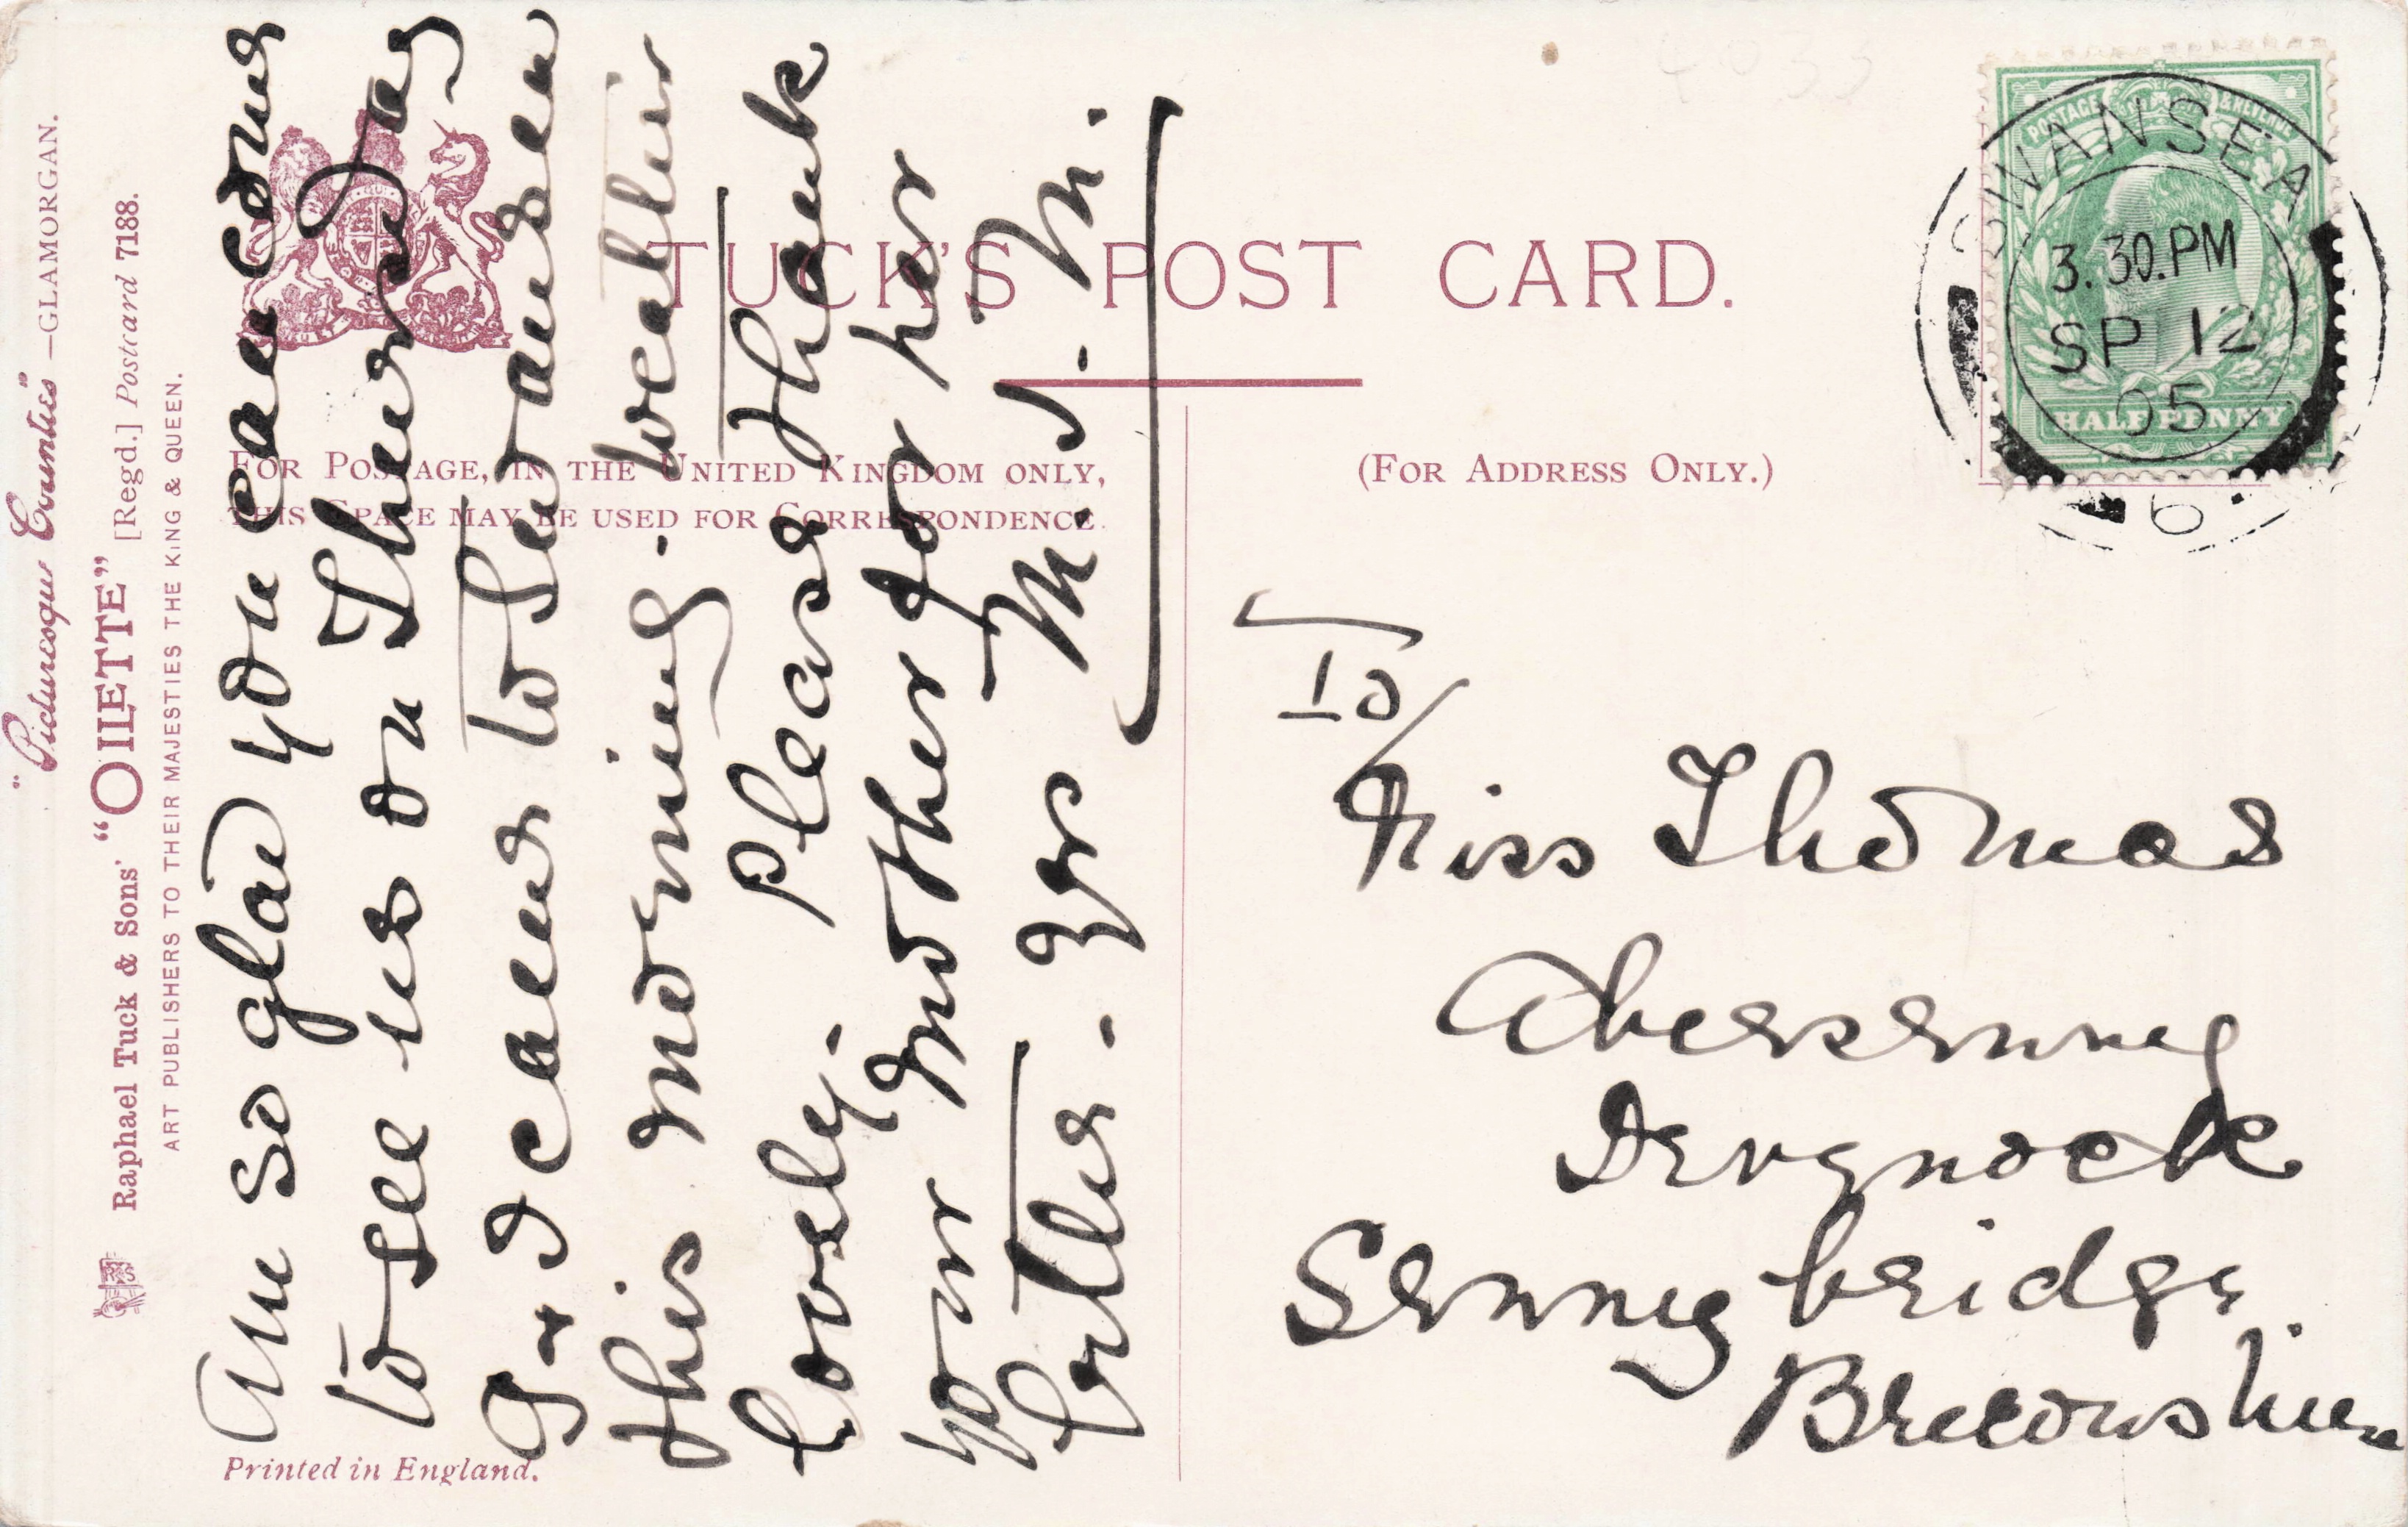 "Picturesque Counties" —GLAMORGAN.
Raphael Tuck & Sons' "OILETTE" [Regd.] Postcard 7188.
ART PUBLISHERS TO THEIR MAJESTIES THE KING & QUEEN.
TUCK'S POST CARD.
FOR POSTAGE, IN THE UNITED KINGDOM ONLY,
THIS SPACE MAY BE USED FOR CORRESPONDENCE.
(FOR ADDRESS ONLY.)
Printed in England.
4033
POSTAGE & REVENUE
HALF PENNY
SWANSEA
3.30.PM
SP 12
05
6
Am so glad you can come
to see us on Thursday
G & I came to Swansea
this morning - weather
lovely - Please thank
your Mother for her
letter - Yrs M. J. M.
10/
Miss Thomas
Abersenny
Devynock
Senny bridge
Breconshire